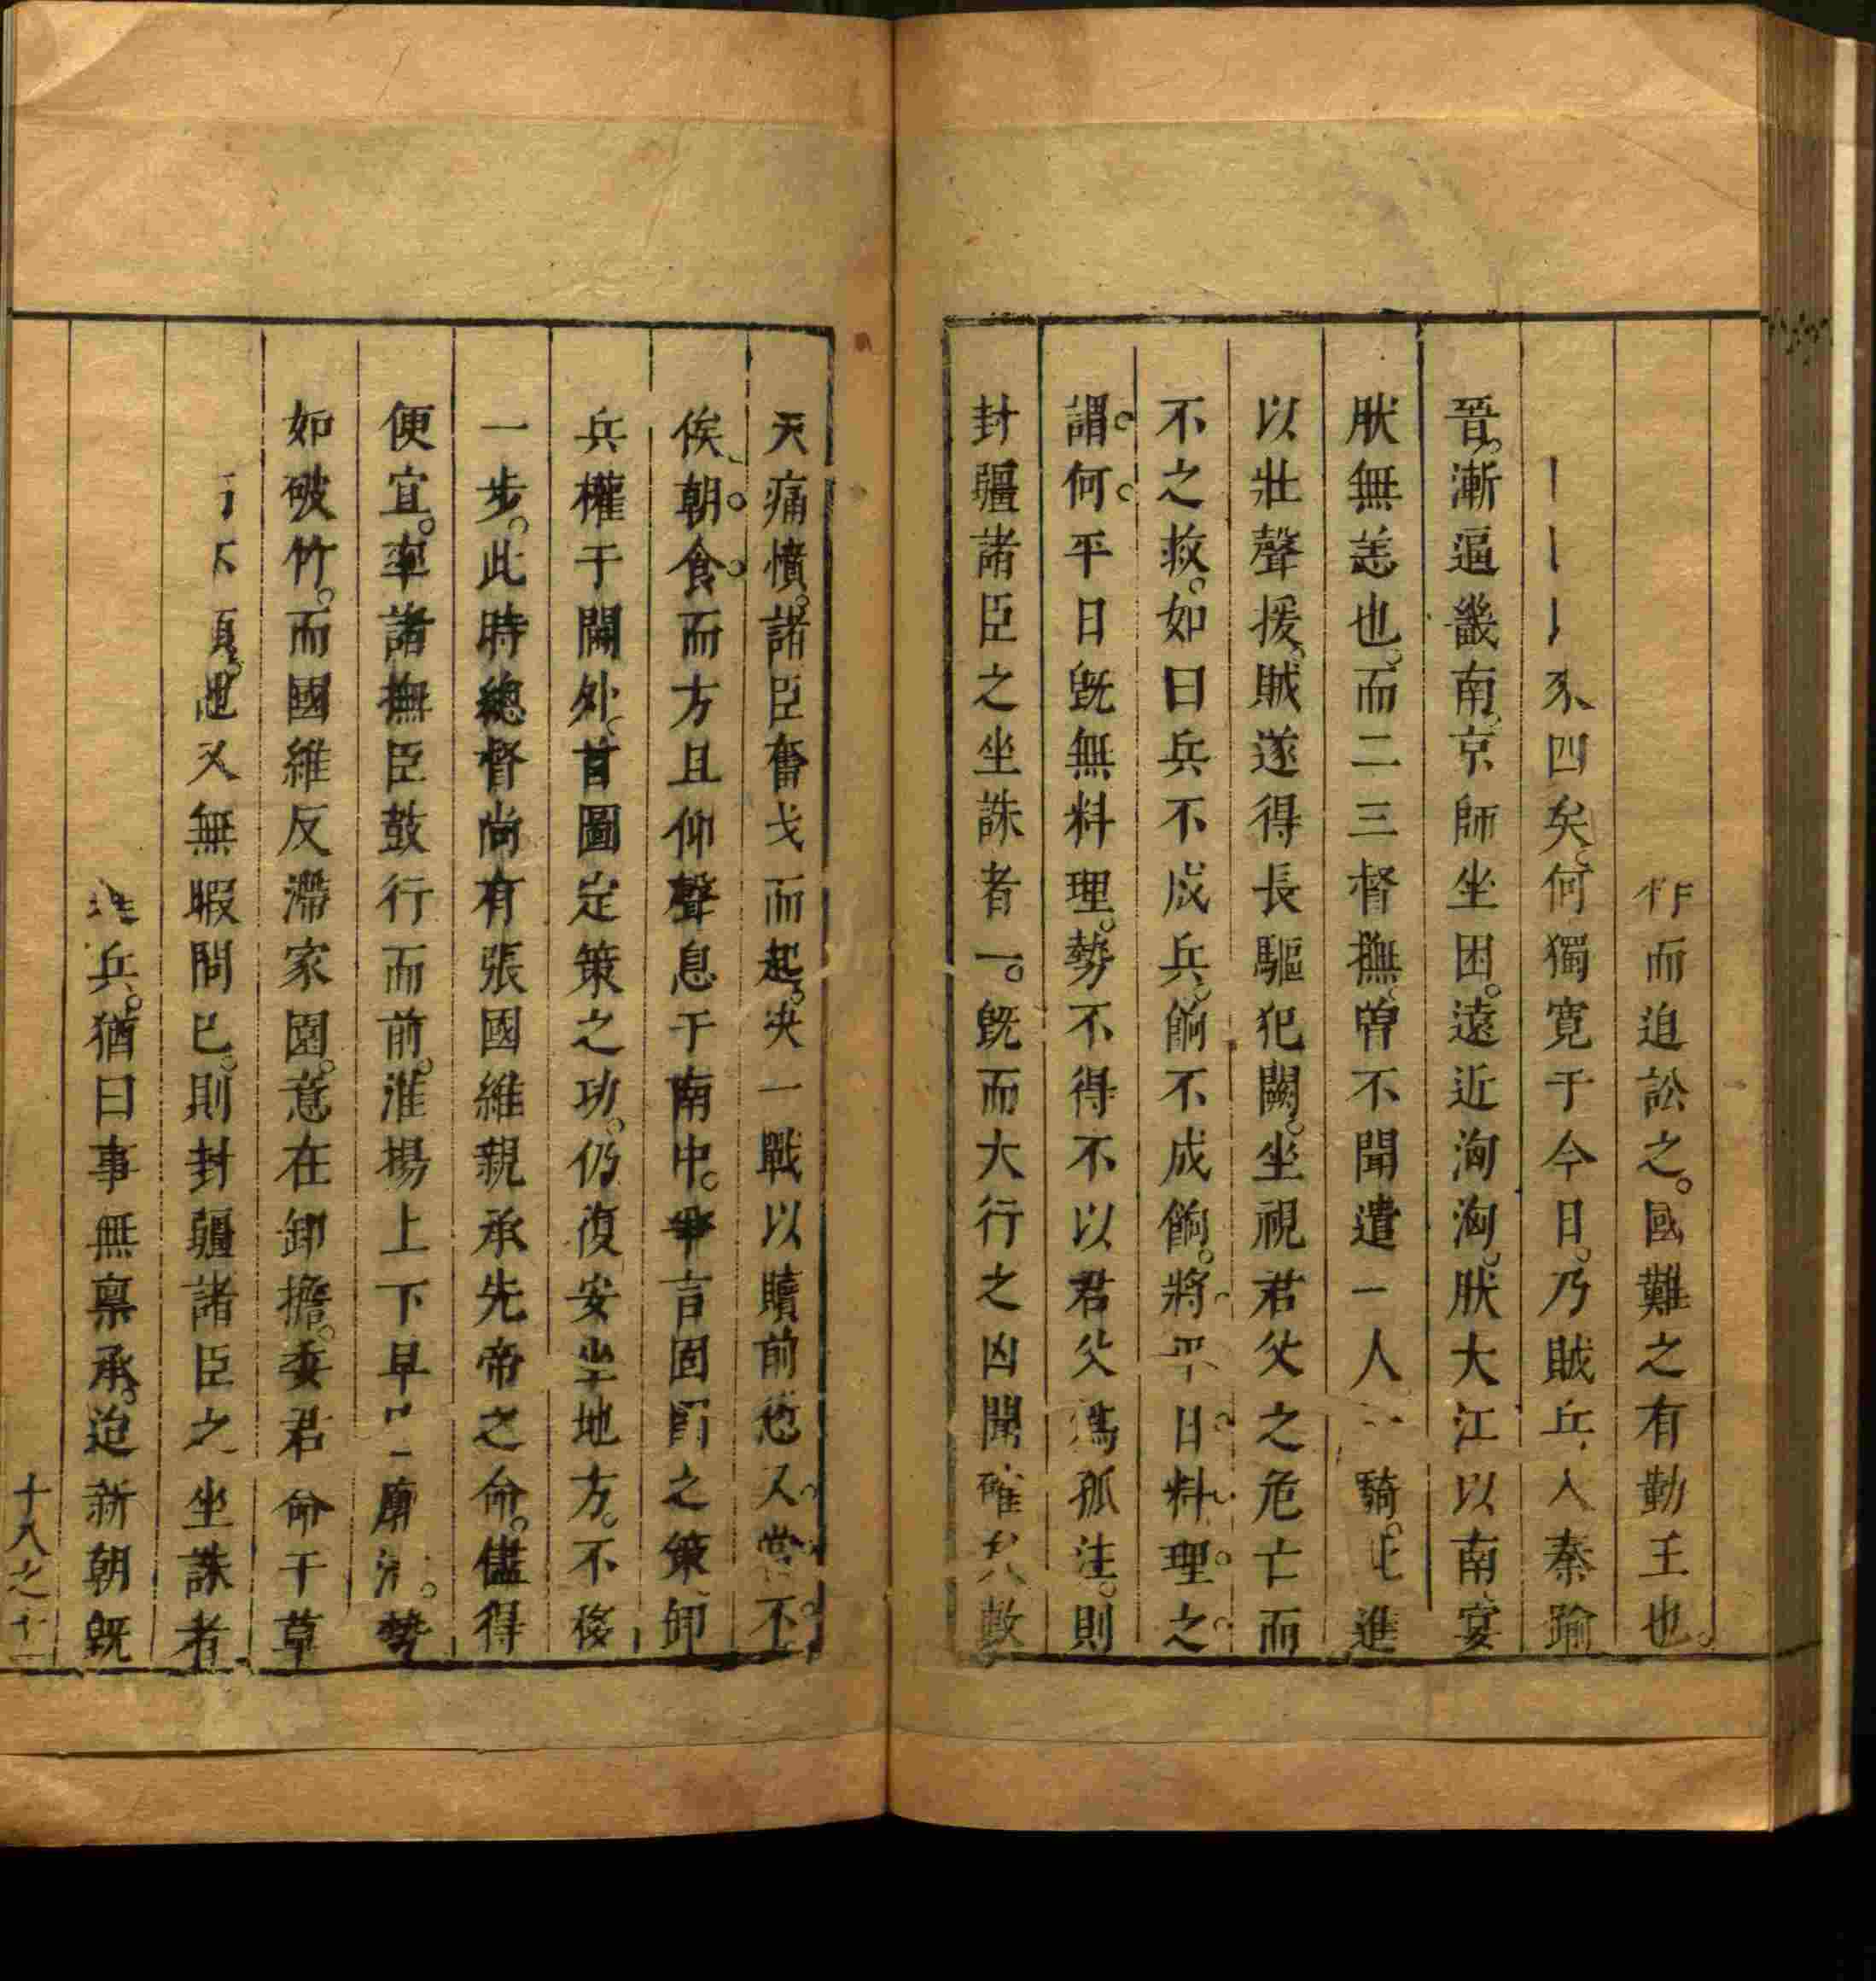 而追訟之。國難之有勤王也。
四矣。何獨寛于今日。乃賊兵入秦踰
晉。漸逼畿南。京師坐困。遠近洶洶。肰大江以南宴
肰無恙也。而二三督撫曽不聞遣一人一騎。進
以壯聲援。賊遂得長驅犯闕。坐視君父之危亡而
不之救。如曰兵不成兵。餉不成餉。將平日料理之
謂何。平日旣無料理。勢不得不以君父爲孤注。則
封疆諸臣之坐誅者一。旣而大行之凶聞確矣。敷
天痛憤。諸臣奮戈而起。决一戰以贖前愆。又當不
俟朝食。而方且仰聲息于南中。爭言固圉之策。卸
兵權于閫外。首圖定策之功。仍復安坐地方。不移
一步。此時總督尚有張國維親承先帝之命。儘得
便宜。率諸撫臣鼓行而前。淮揚上下早 廓清。勢
如破竹。而國維反滯家園。意在卸擔。委君命于草
又無暇問已。則封疆諸臣之坐誅者
兵。猶曰事無稟承。迨新朝旣
十八之十一